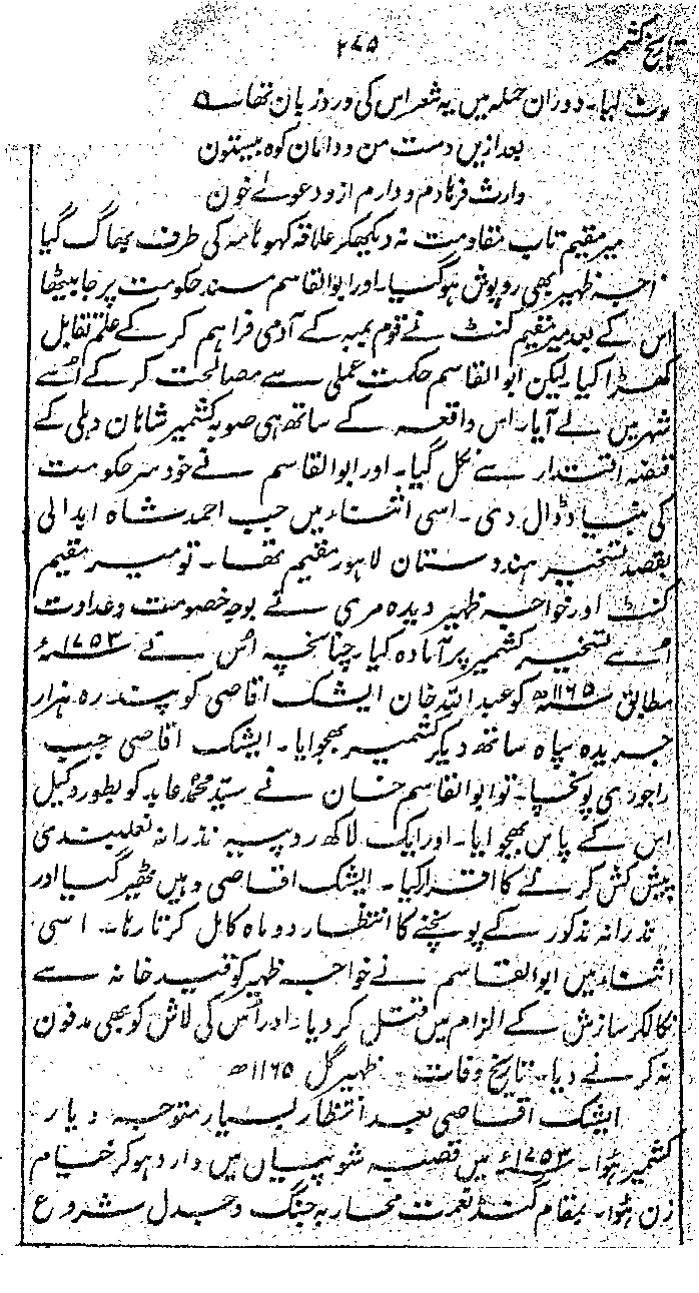 تاریخ کشمیر
۲۷۵
لوٹ لیا۔ دوران حملہ میں یہ شعر اس کی ورد زبان تھا ؎
بعد ازیں دست من و دامان کوہ بیستون
وارث فرہادم و دارم ازو دعوئے خون
میر مقیم تاب مقاومت نہ دیکھکر علاقہ کہوہامہ کی طرف بھاگ گیا
خواجہ ظہیر بھی روپوش ہوگیا۔ اور ابوالقاسم مسند حکومت پر جا بیٹھا
اس کے بعد میر مقیم کنٹ نے قوم بمبہ کے آدمی فراہم کر کے علم تقابل
کھڑا کیا لیکن ابوالقاسم حکمت عملی سے مصالحت کر کے اُسے
شہر میں لے آیا۔ اس واقعہ کے ساتھ ہی صوبہ کشمیر شاہان دہلی کے
قبضہ اقتدار سے نکل گیا۔ اور ابوالقاسم نے خود سر حکومت
کی بنیاد ڈال دی۔ اسی اثناء میں جب احمد شاہ ابدالی
بقصد تسخیر ہندوستان لاہور مقیم تھا۔ تو میر مقیم
کنٹ اور خواجہ ظہیر دیدہ مری نے بوجہ خصومت و عداوت
اُسے تسخیر کشمیر پر آمادہ کیا۔ چنانچہ اُس نے ۱۷۵۳ء
مطابق ۱۱۶۵ھ کو عبداللہ خان ایشک اقاصی کو پندرہ ہزار
جریدہ سپاہ ساتھ دیکر کشمیر بھجوایا۔ ایشک اقاصی جب
راجوری پونچا۔ تو ابوالقاسم خان نے سید محمد عابد کو بطور وکیل
اس کے پاس بھجوایا۔ اور ایک لاکھ روپیہ نذرانہ نعلبندی
پیش کش کرنے کا اقرار کیا۔ ایشک اقاصی وہیں ٹھیر گیا اور
نذرانہ مذکور کے پونچنے کا انتظار دو ماہ کامل کرتا رہا۔ اسی
اثناء میں ابوالقاسم نے خواجہ ظہیر کو قید خانہ سے
نکالکر سازش کے الزام میں قتل کر دیا۔ اور اُس کی لاش کو بھی مدفون
نہ کرنے دیا۔ تاریخ وفات۔ ظہیر گل ۱۱۶۵ھ
ایشک اقاصی بعد انتظار بسیار متوجہ دیار
کشمیر ہُوا۔ ۱۷۵۳ء میں قصبہ شوپیاں میں وارد ہو کر خیام
زن ہُوا۔ بمقام گنڈ نعمت محاربہ جنگ و جدل شروع